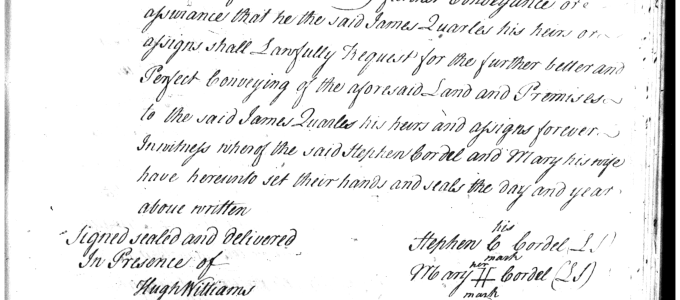 further Conveyance or
assurance that he the said James Quarles his heirs or
assigns shall Lawfully Request for the further better and
Perfect Conveying of the aforesaid Land and Premises
to the said James Quarles his heirs and assigns forever
In witness whereof the said Stephen Cordel and Mary his wife
have hereunto set their hands and seals the day and year
above written
Signed sealed and delivered
In Presence of
Hugh Williams
his
Stephen C Cordel LS
mark
her
Mary H Cordel (LS)
mark